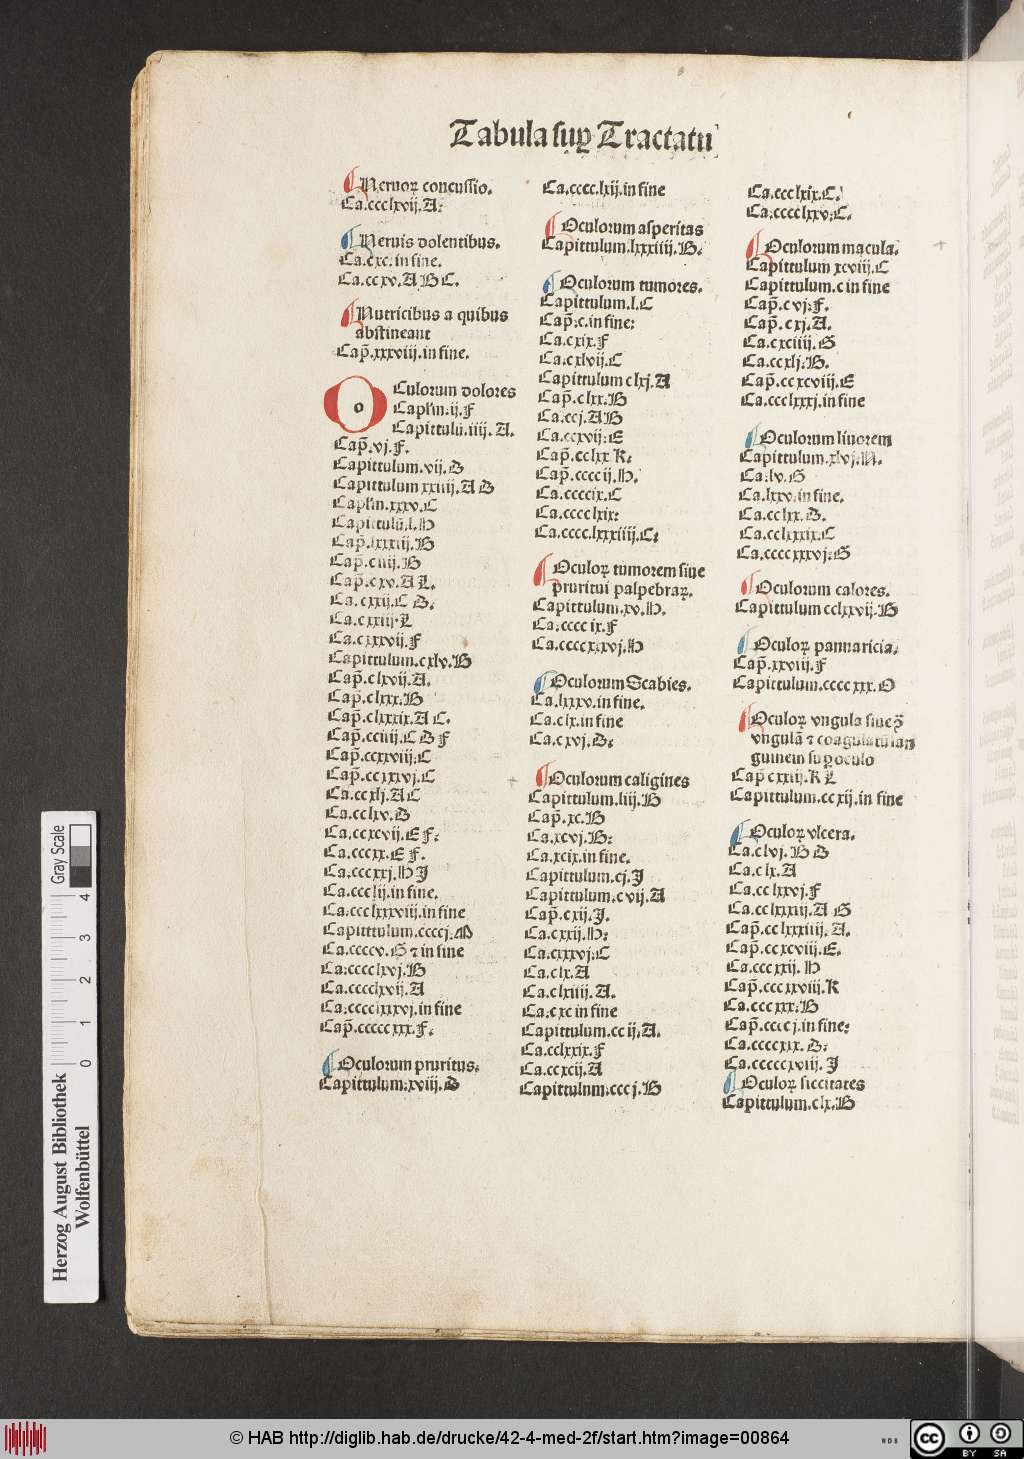 Tabula suꝑ Tractatū
Neruoꝝ concussio.
Ca.ccclxvij.A.
Neruis dolentibus.
Ca.cxc.in fine.
Ca.ccxv.A B C.
Nutricibus a quibus
abstineant
Cap̄.xxxviij.in fine.
o
Culorum dolores
Caplm.ij.F
Capittulū.iiij.A.
Cap̄.vj.F.
Capittulum.vij.D
Capittulum xxiiij.A D
Caplm.xxxv.C
Capittulū.l.H
Cap̄.lxxxiij.B
Cap̄.ciiij.B
Cap̄.cxv.A L.
Ca.cxxij.C D.
Ca.cxxiij.L
Ca.cxxxvij.F
Capittulum.cxlv.B
Cap̄.clxvij.A.
Cap̄.clxxx.B
Cap̄.clxxxix.A C.
Cap̄.cciiij.C D F
Cap̄.ccxxviij.C
Cap̄.ccxxxvj.C
Ca.ccxlj.A C
Ca.cclxv.D
Ca.ccxcvij.E F.
Ca.cccxx.E F.
Ca.cccxxj.H I
Ca.ccclij.in fine.
Ca.ccclxxxviij.in fine
Capittulum.ccccj.M
Ca.ccccv.G ⁊ in fine
Ca.cccclxvj.B
Ca.cccclxvij.A
Ca.cccclxxxvj.in fine
Cap̄.cccccxxx.F.
Oculorum pruritus.
Capittulum.xviij.D
Ca.cccc.lxij.in fine
Oculorum asperitas
Capittulum.lxxxiiij.B.
Oculorum tumores.
Capittulum.l.C
Cap̄.c.in fine.
Ca.cxix.F
Ca.cxlvij.C
Capittulum clxj.A
Cap̄.clxx.B
Ca.ccj.A B
Ca.ccxvij.E
Cap̄.cclxx K.
Cap̄.ccccij.H.
Ca.ccccix.C
Ca.cccclxix.
Ca.cccc.lxxxiiij.C.
Oculoꝝ tumorem siue
pruritui palpebraꝝ.
Capittulum.xv.H.
Ca.ccccix.F
Ca.ccccxxxvj.H
Oculorum Scabies.
Ca.lxxxv.in fine.
Ca.clx.in fine
Ca.cxvj.D.
Oculorum caligines
Capittulum.liij.B
Cap̄.xc.B
Ca.xcvj.B.
Ca.xcix.in fine.
Capittulum.cj.I
Capittulum.cvij.A
Cap̄.cxij.I.
Ca.cxxij.H.
Ca.cxxxvj.C
Ca.clx.A
Ca.clxiiij.A.
Ca.cxc in fine
Capittulum.ccij.A.
Ca.cclxxix.F
Ca.ccxcij.A
Capittulum.cccj.B
Ca.ccclxix.C.
Ca.cccclxxv.C.
Oculorum macula.
Capittulum xcviij.C
Capittulum.c in fine
Cap̄.cvj.F.
Cap̄.cxj.A.
Ca.cxciiij.G
Ca.ccxlj.B.
Cap̄.ccxcviij.E
Ca.ccclxxxj.in fine
Oculorum liuorem
Capittulum.xlvj.N.
Ca.lv.G
Ca.lxxv.in fine.
Ca.cclxx.D.
Ca.cclxxxix.C
Ca.ccccxxxvj.G
Oculorum calores.
Capittulum cclxxvij.B
Oculoꝝ pannaricia.
Cap̄.xxviij.F
Capittulum.ccccxxx.O
Oculoꝝ vngula siue
vngulā ⁊ coagulatū san
guinem suꝑ oculo
Cap̄ cxxiij.K L
Capittulum.ccxij.in fine
Oculoꝝ vlcera.
Ca.clvj.B D
Ca.clx.A
Ca.cclxxvj.F
Ca.cclxxxiij.A G
Cap̄.cclxxxiiij.A.
Cap̄.ccxcviij.E.
Ca.cccxxij.H
Cap̄.cccxxviij.K
Ca.cccxxx.B
Cap̄.ccccj.in fine.
Ca.ccccxix.D.
Ca.cccccxviij.I
Oculoꝝ siccitates
Capittulum.clx.B
Gray Scale
4
3
2
1
0
Herzog August Bibliothek
Wolfenbüttel
© HAB http://diglib.hab.de/drucke/42-4-med-2f/start.htm?image=00864
WDB
cc
BY
SA